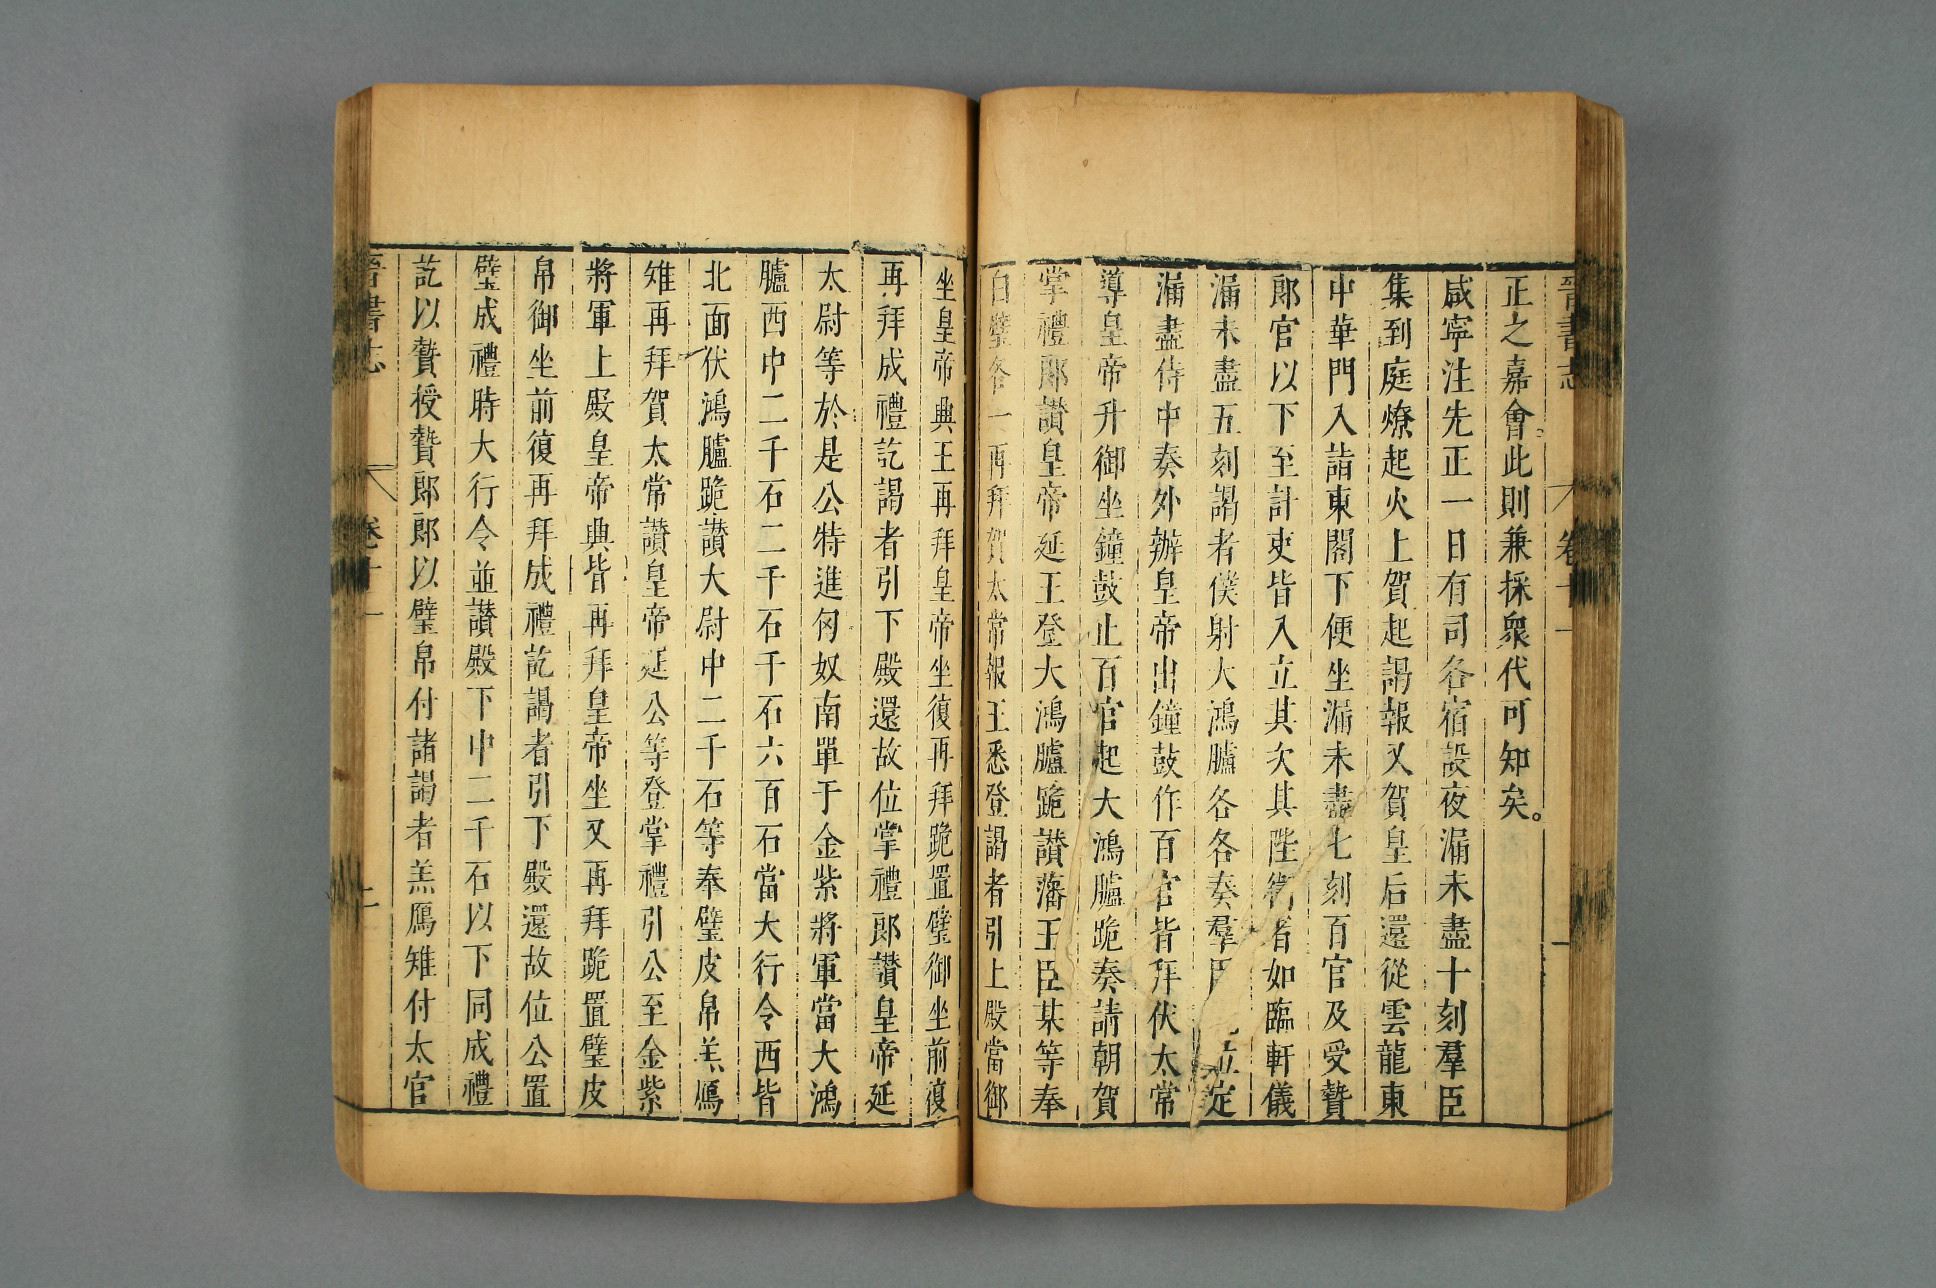 晉書志 卷十一
正之嘉會此則兼採衆代可知矣。
咸寧注先正一日有司各宿設夜漏未盡十刻羣臣
集到庭燎起火上賀起謁報又賀皇后還從雲龍東
中華門入詣東閣下便坐漏未盡七刻百官及受贄
郎官以下至計吏皆入立其次其陛衛者如臨軒儀
漏未盡五刻謁者僕射大鴻臚各各奏羣 立定
漏盡侍中奏外辦皇帝出鐘鼓作百官皆拜伏太常
導皇帝升御坐鐘鼓止百官起大鴻臚跪奏請朝賀
掌禮郎讃皇帝延王登大鴻臚跪讃藩王臣某等奉
白璧各一再拜賀太常報王悉登謁者引上殿當御
坐皇帝興王再拜皇帝坐復再拜跪置璧御坐前復
再拜成禮訖謁者引下殿還故位掌禮郎讃皇帝延
太尉等於是公特進匈奴南單于金紫將軍當大鴻
臚西中二千石二千石千石六百石當大行令西皆
北面伏鴻臚跪讃大尉中二千石等奉璧皮帛羔鴈
雉再拜賀太常讃皇帝延公等登掌禮引公至金紫
將軍上殿皇帝興皆再拜皇帝坐又再拜跪置璧皮
帛御坐前復再拜成禮訖謁者引下殿還故位公置
璧成禮時大行令並讃殿下中二千石以下同成禮
訖以贄授贄郎郎以璧帛付諸謁者羔鴈雉付太官
晉書志 卷十一 二